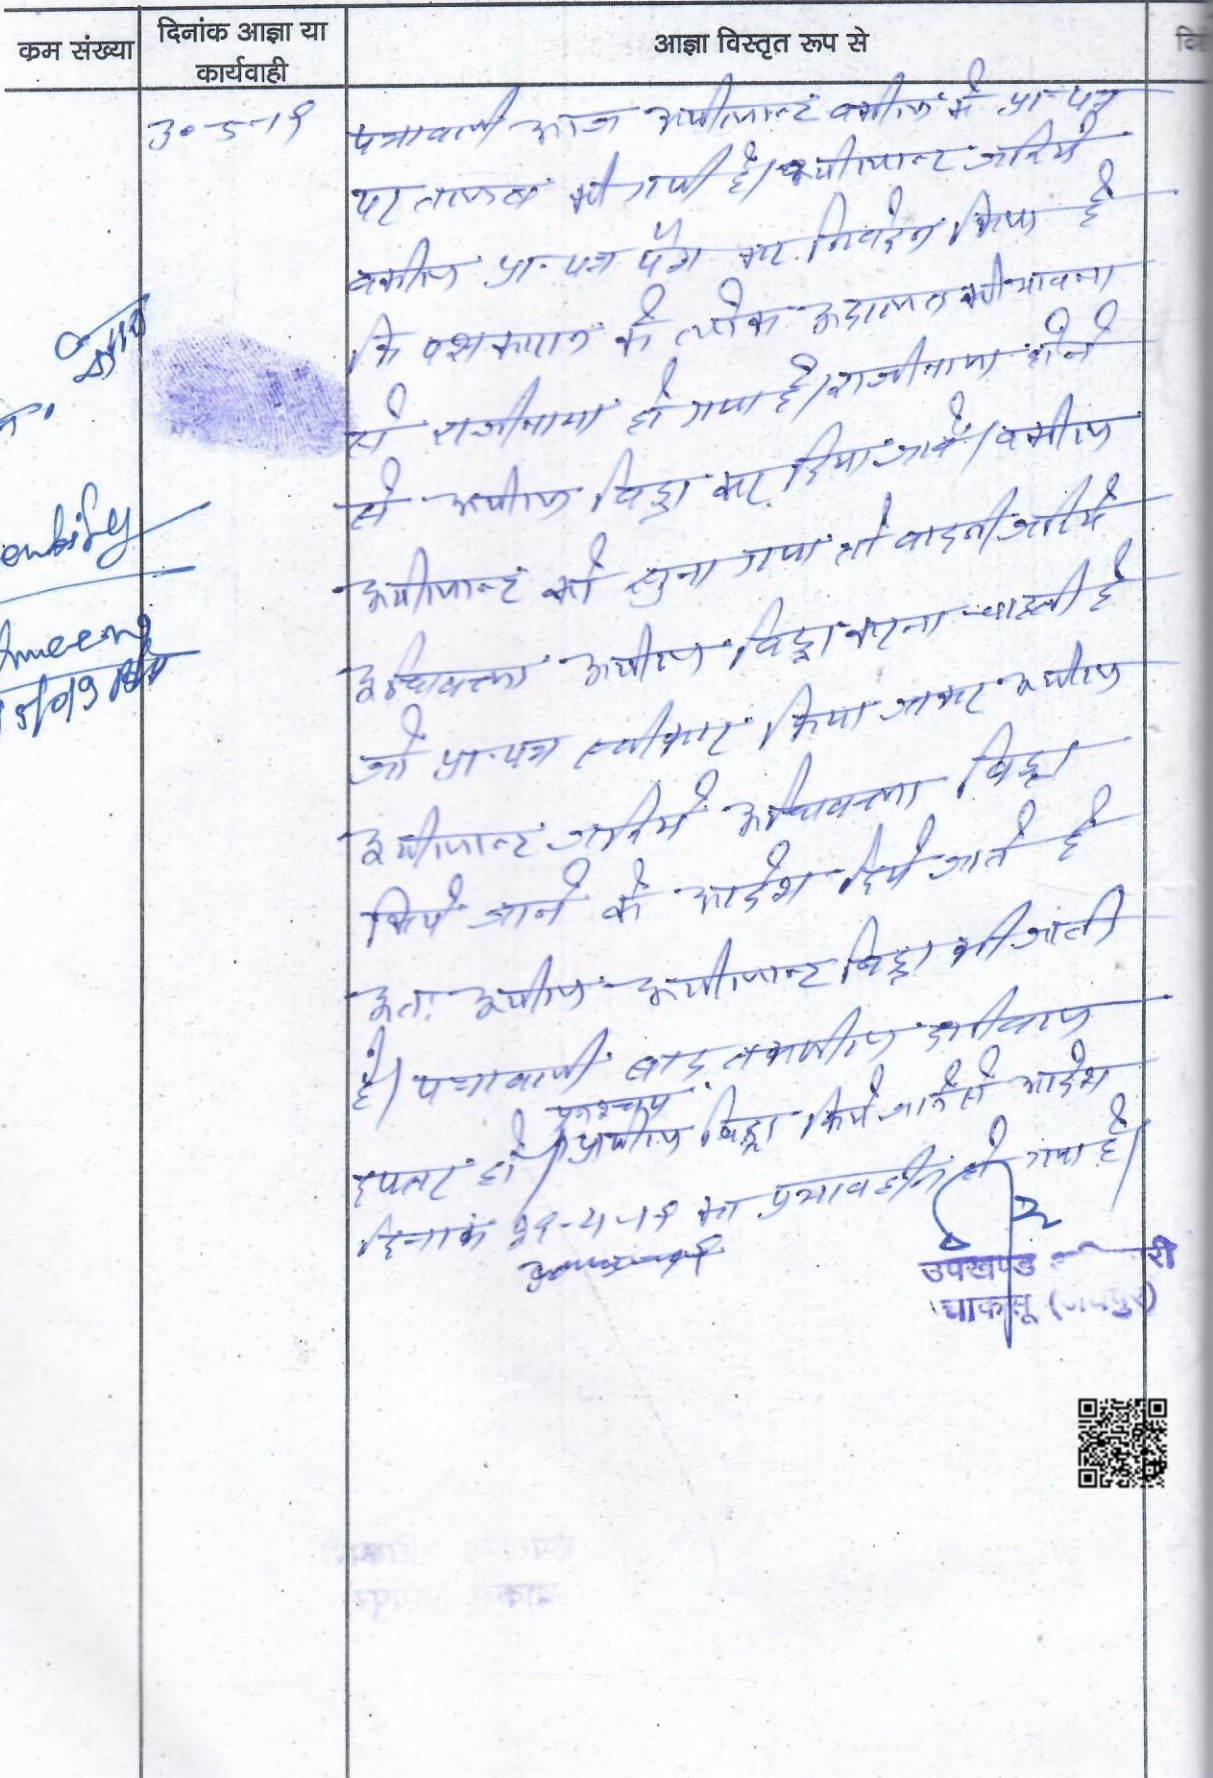 क्रम संख्या
दिनांक आज्ञा या
कार्यवाही
आज्ञा विस्तृत रूप से
30-5-19
पत्रावली आज अपीलान्ट वकील के प्रा-पत्र
पर तलब की गयी है। अपीलान्ट जरिये
वकील प्रा-पत्र पेश कर निवेदन किया है
कि पक्षकारान के लोक अदालत की भावना
से राजीनामा हो गया है। राजीनामा होने
से अपील विड्रा कर दिया जावे। वकील
अपीलान्ट को सुना गया तो वादनी जरिये
अधिवक्ता अपील विड्रा करना चाहती है
जो प्रा-पत्र स्वीकार किया जाकर अपील
अपीलान्ट जरिये अधिवक्ता विड्रा
किये जाने के आदेश दिये जाते है
अतः अपील अपीलान्ट विड्रा की जाती
है। पत्रावली बाद तकमील दाखिल
दफ्तर हो।
पुनश्चय
अपील विड्रा किये जाने से आदेश
दिनांक 29-4-19 का प्रभावहीन हो गया है।
उपखण्ड
चाकसू (जयपुर)